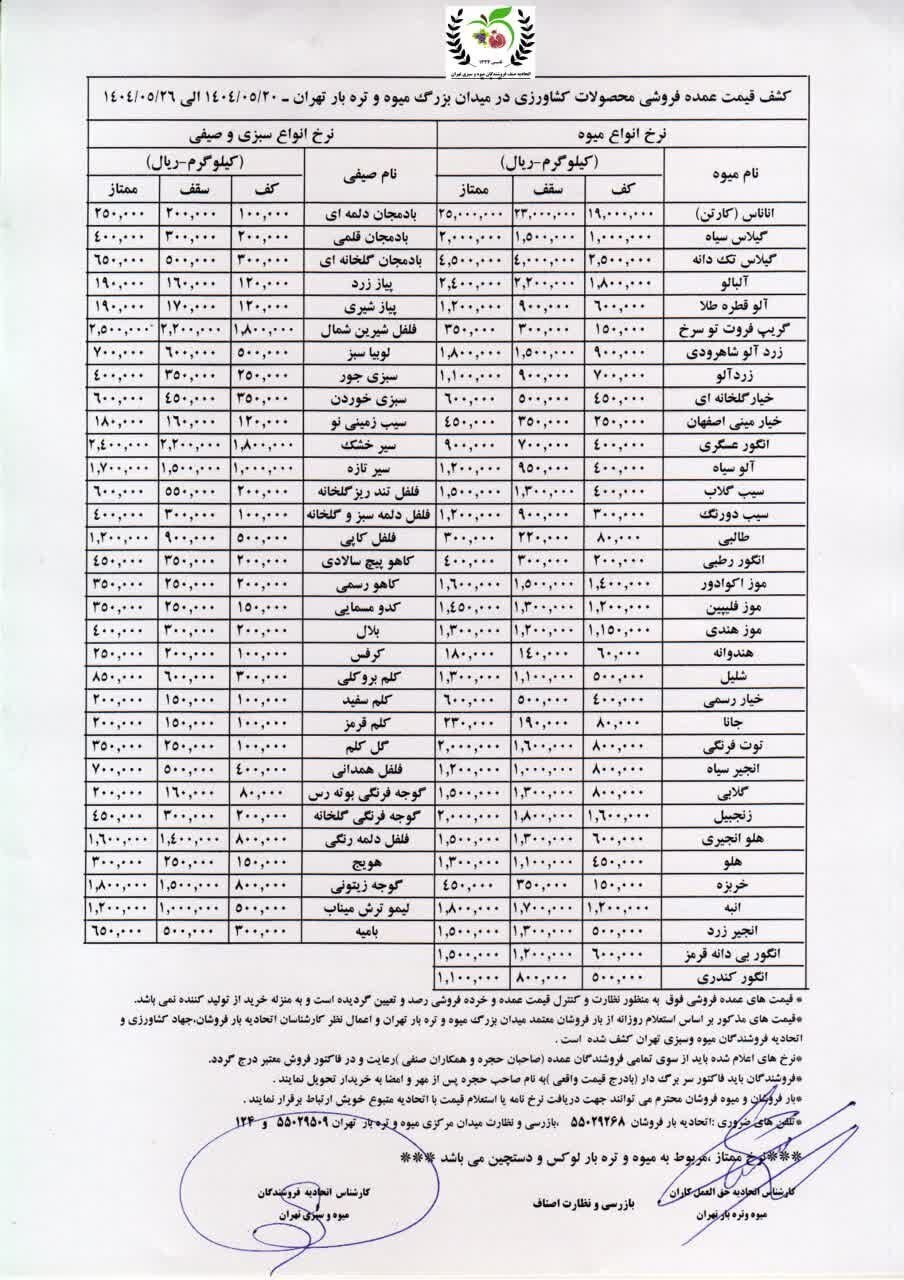 تاسیس ۱۳۲۴
اتحادیه صنف فروشندگان میوه و سبزی تهران
کشف قیمت عمده فروشی محصولات کشاورزی در میدان بزرگ میوه و تره بار تهران ـ ۱۴۰۴/۰۵/۲۰ الی ۱۴۰۴/۰۵/۲۶
نرخ انواع میوه نرخ انواع سبزی و صیفی
نام میوه (کیلوگرم-ریال) نام صیفی (کیلوگرم-ریال)
کف سقف ممتاز کف سقف ممتاز
اناناس (کارتن) ۱۹,۰۰۰,۰۰۰ ۲۳,۰۰۰,۰۰۰ ۲۵,۰۰۰,۰۰۰ بادمجان دلمه ای ۱۰۰,۰۰۰ ۲۰۰,۰۰۰ ۲۵۰,۰۰۰
گیلاس سیاه ۱,۰۰۰,۰۰۰ ۱,۵۰۰,۰۰۰ ۲,۰۰۰,۰۰۰ بادمجان قلمی ۲۰۰,۰۰۰ ۳۰۰,۰۰۰ ۴۰۰,۰۰۰
گیلاس تک دانه ۲,۵۰۰,۰۰۰ ۴,۰۰۰,۰۰۰ ۴,۵۰۰,۰۰۰ بادمجان گلخانه ای ۳۰۰,۰۰۰ ۵۰۰,۰۰۰ ۶۵۰,۰۰۰
آلبالو ۱,۸۰۰,۰۰۰ ۲,۲۰۰,۰۰۰ ۲,۴۰۰,۰۰۰ پیاز زرد ۱۲۰,۰۰۰ ۱۶۰,۰۰۰ ۱۹۰,۰۰۰
آلو قطره طلا ۶۰۰,۰۰۰ ۹۰۰,۰۰۰ ۱,۲۰۰,۰۰۰ پیاز شیری ۱۲۰,۰۰۰ ۱۷۰,۰۰۰ ۱۹۰,۰۰۰
گریپ فروت تو سرخ ۱۵۰,۰۰۰ ۳۰۰,۰۰۰ ۳۵۰,۰۰۰ فلفل شیرین شمال ۱,۸۰۰,۰۰۰ ۲,۲۰۰,۰۰۰ ۲,۵۰۰,۰۰۰
زرد آلو شاهرودی ۹۰۰,۰۰۰ ۱,۵۰۰,۰۰۰ ۱,۸۰۰,۰۰۰ لوبیا سبز ۵۰۰,۰۰۰ ۶۰۰,۰۰۰ ۷۰۰,۰۰۰
زردآلو ۷۰۰,۰۰۰ ۹۰۰,۰۰۰ ۱,۱۰۰,۰۰۰ سبزی جور ۲۵۰,۰۰۰ ۳۵۰,۰۰۰ ۴۰۰,۰۰۰
خیارگلخانه ای ۴۵۰,۰۰۰ ۵۰۰,۰۰۰ ۶۰۰,۰۰۰ سبزی خوردن ۳۵۰,۰۰۰ ۴۵۰,۰۰۰ ۶۰۰,۰۰۰
خیار مینی اصفهان ۲۵۰,۰۰۰ ۳۵۰,۰۰۰ ۴۵۰,۰۰۰ سیب زمینی نو ۱۲۰,۰۰۰ ۱۶۰,۰۰۰ ۱۸۰,۰۰۰
انگور عسگری ۴۰۰,۰۰۰ ۷۰۰,۰۰۰ ۹۰۰,۰۰۰ سیر خشک ۱,۸۰۰,۰۰۰ ۲,۲۰۰,۰۰۰ ۲,۴۰۰,۰۰۰
آلو سیاه ۴۰۰,۰۰۰ ۹۵۰,۰۰۰ ۱,۲۰۰,۰۰۰ سیر تازه ۱,۰۰۰,۰۰۰ ۱,۵۰۰,۰۰۰ ۱,۷۰۰,۰۰۰
سیب گلاب ۴۰۰,۰۰۰ ۱,۳۰۰,۰۰۰ ۱,۵۰۰,۰۰۰ فلفل تند ریزگلخانه ۲۰۰,۰۰۰ ۵۵۰,۰۰۰ ۶۰۰,۰۰۰
سیب دورنگ ۳۰۰,۰۰۰ ۹۰۰,۰۰۰ ۱,۲۰۰,۰۰۰ فلفل دلمه سبز و گلخانه ۱۰۰,۰۰۰ ۳۰۰,۰۰۰ ۴۰۰,۰۰۰
طالبی ۸۰,۰۰۰ ۲۲۰,۰۰۰ ۳۰۰,۰۰۰ فلفل کاپی ۵۰۰,۰۰۰ ۹۰۰,۰۰۰ ۱,۲۰۰,۰۰۰
انگور رطبی ۲۰۰,۰۰۰ ۳۰۰,۰۰۰ ۴۰۰,۰۰۰ کاهو پیچ سالادی ۲۰۰,۰۰۰ ۳۵۰,۰۰۰ ۴۵۰,۰۰۰
موز اکوادور ۱,۴۰۰,۰۰۰ ۱,۵۰۰,۰۰۰ ۱,۶۰۰,۰۰۰ کاهو رسمی ۲۰۰,۰۰۰ ۲۵۰,۰۰۰ ۳۵۰,۰۰۰
موز فلیپین ۱,۲۰۰,۰۰۰ ۱,۳۰۰,۰۰۰ ۱,۴۵۰,۰۰۰ کدو مسمایی ۱۵۰,۰۰۰ ۲۵۰,۰۰۰ ۳۵۰,۰۰۰
موز هندی ۱,۱۵۰,۰۰۰ ۱,۲۰۰,۰۰۰ ۱,۳۰۰,۰۰۰ بلال ۲۰۰,۰۰۰ ۳۰۰,۰۰۰ ۴۰۰,۰۰۰
هندوانه ۶۰,۰۰۰ ۱۴۰,۰۰۰ ۱۸۰,۰۰۰ کرفس ۱۰۰,۰۰۰ ۲۰۰,۰۰۰ ۲۵۰,۰۰۰
شلیل ۵۰۰,۰۰۰ ۱,۱۰۰,۰۰۰ ۱,۳۰۰,۰۰۰ کلم بروکلی ۳۰۰,۰۰۰ ۶۰۰,۰۰۰ ۸۵۰,۰۰۰
خیار رسمی ۴۰۰,۰۰۰ ۵۰۰,۰۰۰ ۶۰۰,۰۰۰ کلم سفید ۱۰۰,۰۰۰ ۱۵۰,۰۰۰ ۲۰۰,۰۰۰
جانا ۸۰,۰۰۰ ۱۹۰,۰۰۰ ۲۳۰,۰۰۰ کلم قرمز ۱۰۰,۰۰۰ ۱۵۰,۰۰۰ ۲۰۰,۰۰۰
توت فرنگی ۸۰۰,۰۰۰ ۱,۶۰۰,۰۰۰ ۲,۰۰۰,۰۰۰ گل کلم ۱۰۰,۰۰۰ ۲۵۰,۰۰۰ ۳۵۰,۰۰۰
انجیر سیاه ۸۰۰,۰۰۰ ۱,۰۰۰,۰۰۰ ۱,۲۰۰,۰۰۰ فلفل همدانی ۴۰۰,۰۰۰ ۵۰۰,۰۰۰ ۷۰۰,۰۰۰
گلابی ۸۰۰,۰۰۰ ۱,۳۰۰,۰۰۰ ۱,۵۰۰,۰۰۰ گوجه فرنگی بوته رس ۸۰,۰۰۰ ۱۶۰,۰۰۰ ۲۰۰,۰۰۰
زنجبیل ۱,۶۰۰,۰۰۰ ۱,۸۰۰,۰۰۰ ۲,۰۰۰,۰۰۰ گوجه فرنگی گلخانه ۲۰۰,۰۰۰ ۳۰۰,۰۰۰ ۴۵۰,۰۰۰
هلو انجیری ۶۰۰,۰۰۰ ۱,۳۰۰,۰۰۰ ۱,۵۰۰,۰۰۰ فلفل دلمه رنگی ۸۰۰,۰۰۰ ۱,۴۰۰,۰۰۰ ۱,۶۰۰,۰۰۰
هلو ۴۵۰,۰۰۰ ۱,۱۰۰,۰۰۰ ۱,۳۰۰,۰۰۰ هویج ۱۵۰,۰۰۰ ۲۵۰,۰۰۰ ۳۰۰,۰۰۰
خربزه ۱۵۰,۰۰۰ ۳۵۰,۰۰۰ ۴۵۰,۰۰۰ گوجه زیتونی ۸۰۰,۰۰۰ ۱,۵۰۰,۰۰۰ ۱,۸۰۰,۰۰۰
انبه ۱,۲۰۰,۰۰۰ ۱,۷۰۰,۰۰۰ ۱,۸۰۰,۰۰۰ لیمو ترش میناب ۵۰۰,۰۰۰ ۱,۰۰۰,۰۰۰ ۱,۲۰۰,۰۰۰
انجیر زرد ۵۰۰,۰۰۰ ۱,۳۰۰,۰۰۰ ۱,۵۰۰,۰۰۰ بامیه ۳۰۰,۰۰۰ ۵۰۰,۰۰۰ ۶۵۰,۰۰۰
انگور بی دانه قرمز ۶۰۰,۰۰۰ ۱,۲۰۰,۰۰۰ ۱,۵۰۰,۰۰۰
انگور کندری ۵۰۰,۰۰۰ ۸۰۰,۰۰۰ ۱,۱۰۰,۰۰۰
* قیمت های عمده فروشی فوق به منظور نظارت و کنترل قیمت عمده و خرده فروشی رصد و تعیین گردیده است و به منزله خرید از تولید کننده نمی باشد.
*قیمت های مذکور بر اساس استعلام روزانه از بار فروشان معتمد میدان بزرگ میوه و تره بار تهران و اعمال نظر کارشناسان اتحادیه بار فروشان،جهاد کشاورزی و
اتحادیه فروشندگان میوه وسبزی تهران کشف شده است .
*نرخ های اعلام شده باید از سوی تمامی فروشندگان عمده (صاحبان حجره و همکاران صنفی )رعایت و در فاکتور فروش معتبر درج گردد.
*فروشندگان باید فاکتور سر برگ دار (بادرج قیمت واقعی )به نام صاحب حجره پس از مهر و امضا به خریدار تحویل نمایند .
*بار فروشان و میوه فروشان محترم می توانند جهت دریافت نرخ نامه یا استعلام قیمت با اتحادیه متبوع خویش ارتباط برقرار نمایند .
*تلفن های ضروری :اتحادیه بار فروشان ۵۵۰۲۹۲۶۸ ،بازرسی و نظارت میدان مرکزی میوه و تره بار تهران ۵۵۰۲۹۵۰۹ و ۱۲۴
***نرخ ممتاز ،مربوط به میوه و تره بار لوکس و دستچین می باشد ***
کارشناس اتحادیه حق العمل کاران بازرسی و نظارت اصناف کارشناس اتحادیه فروشندگان
میوه وتره بار تهران میوه و سبزی تهران